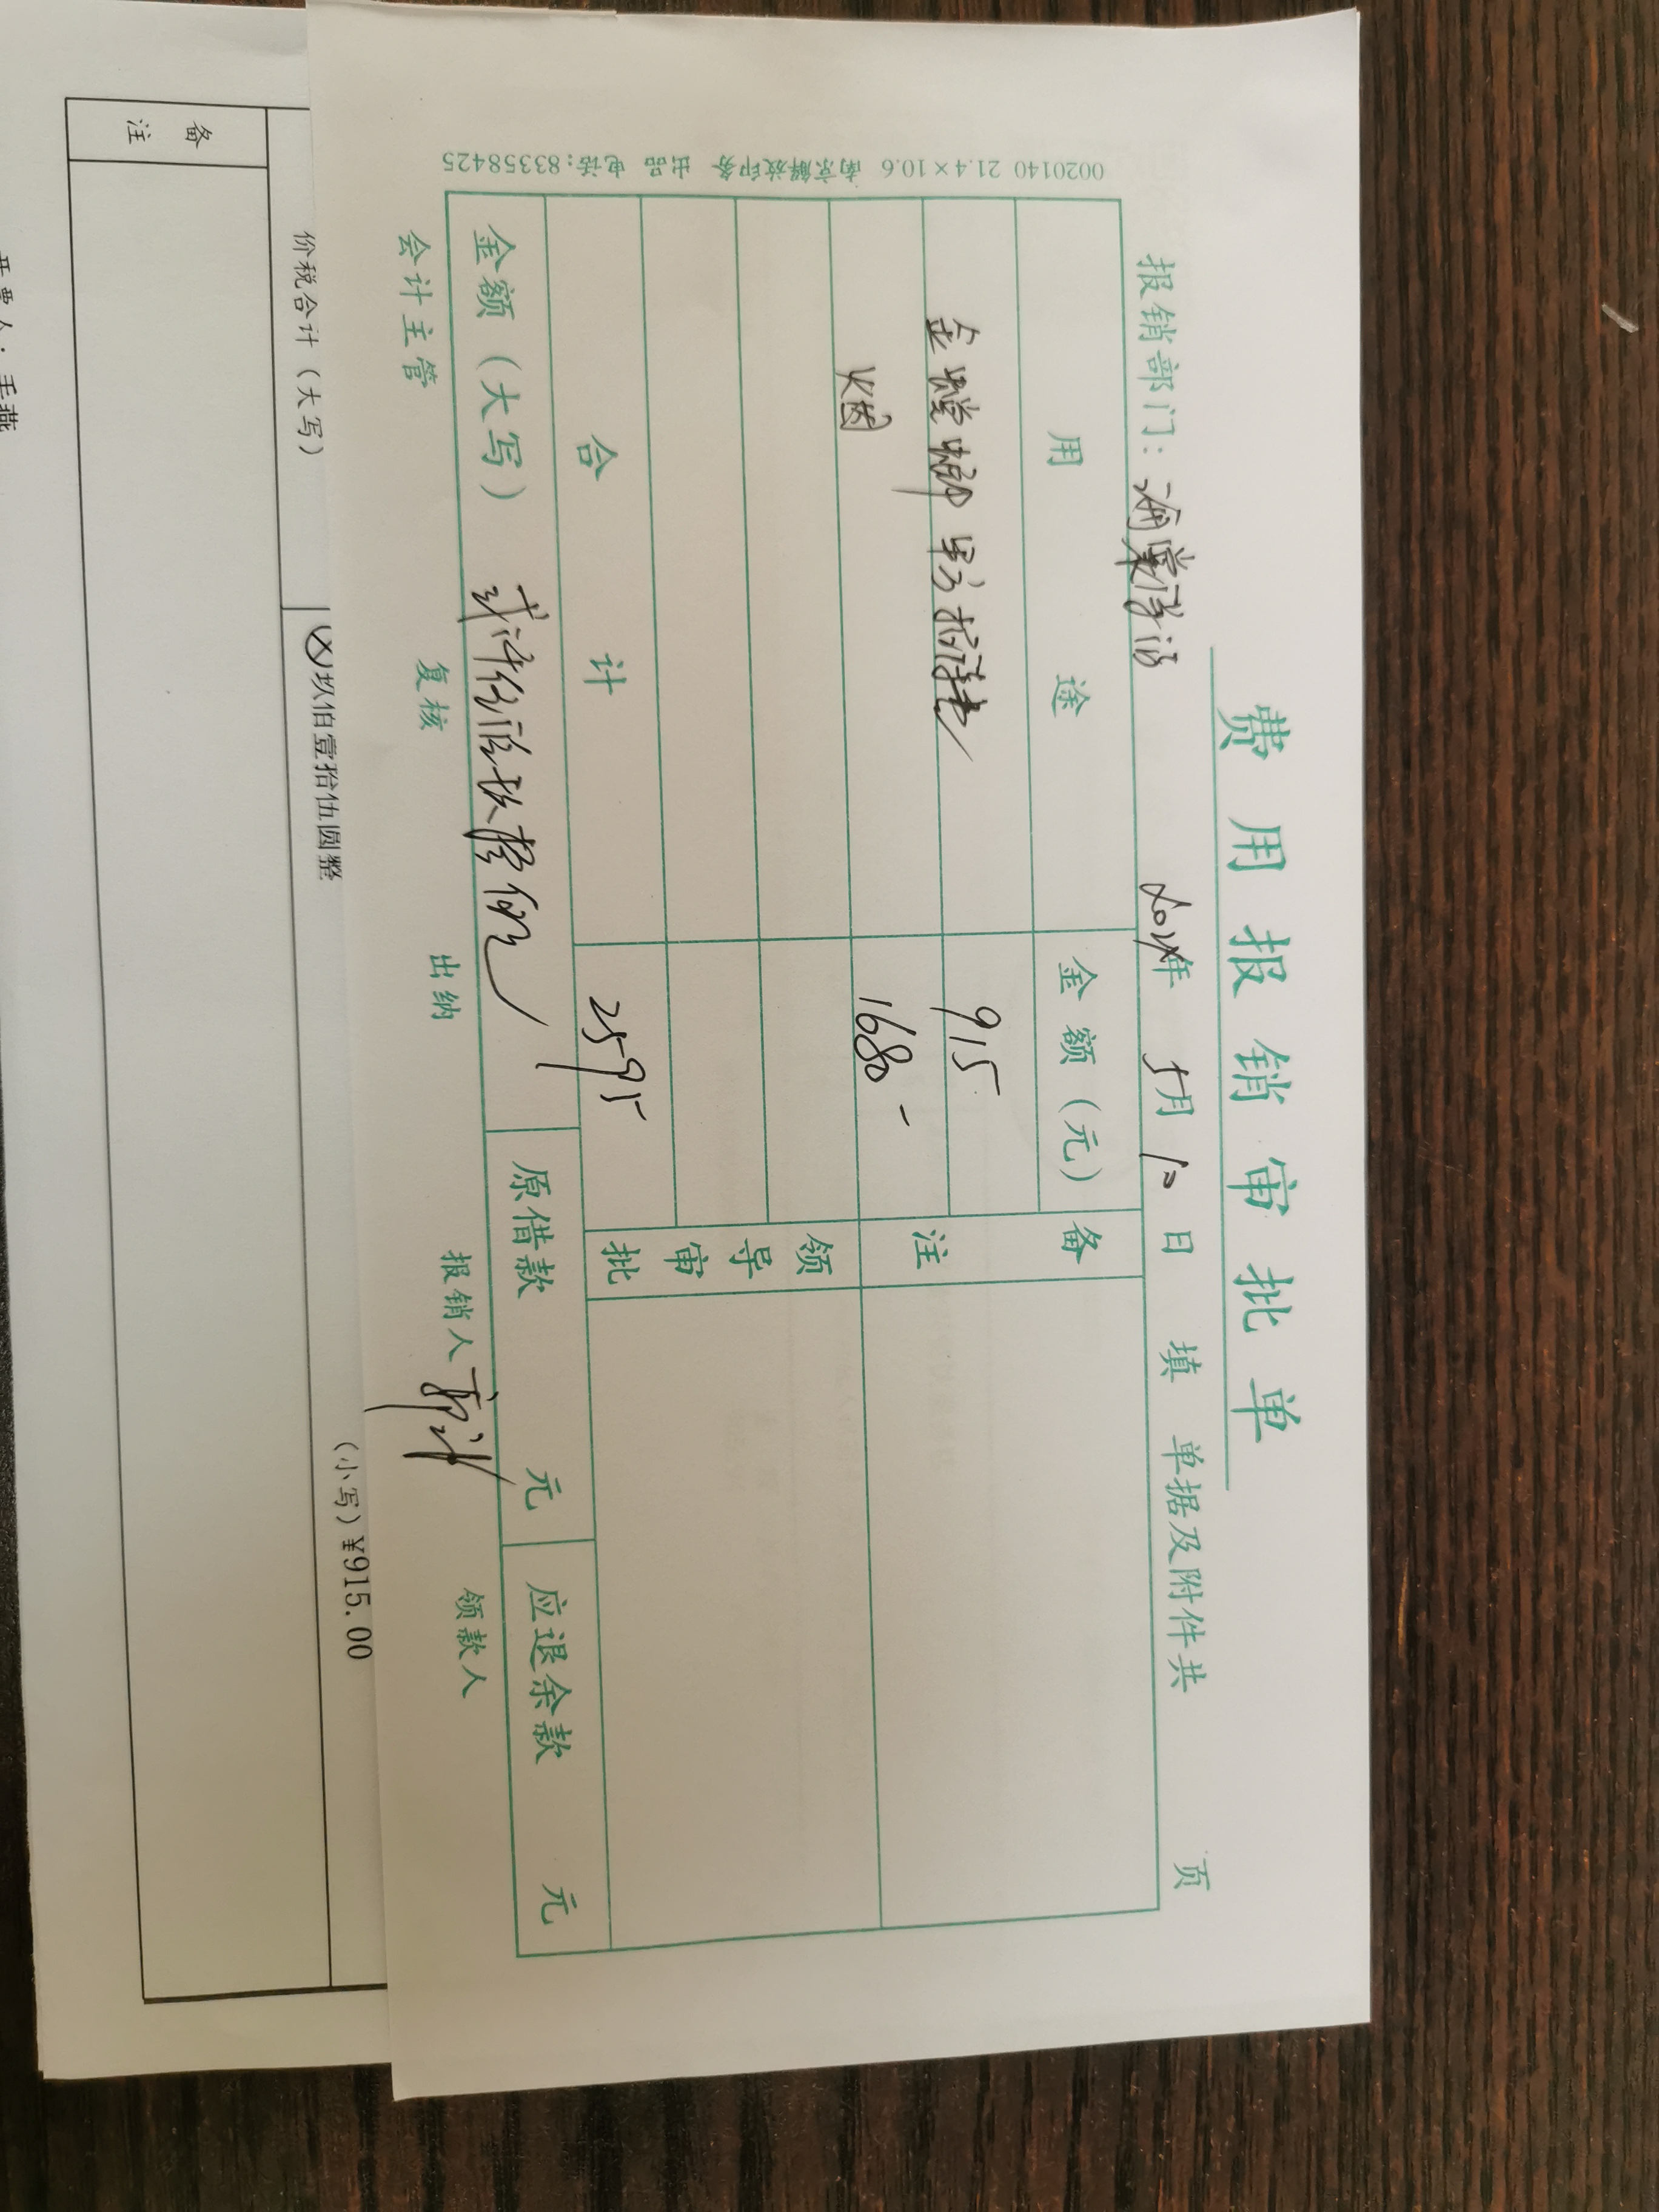 费用报销审批单
报销部门: 年 5月 日 填 单据及附件共 页
用途 金额(元) 备注
915
烟 1680-
领导审批
合计 2595
金额(大写) 贰仟伍佰玖拾伍元 原借款 元 应退余款 元
会计主管 复核 出纳 报销人 领款人
0020140 21.4×10.6 南京解放印务 出品 电话:83358425
价税合计(大写) ⊗玖佰壹拾伍圆整 (小写)¥915.00
备注
开票人:毛燕